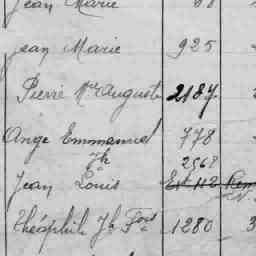 Jean Marie
Jean Marie 925
Pierre Mie Auguste 2187
Ange Emmanuel 778
Jh 2568
Jean Louis Ext 112
Théophile Jh Fois 1280 3